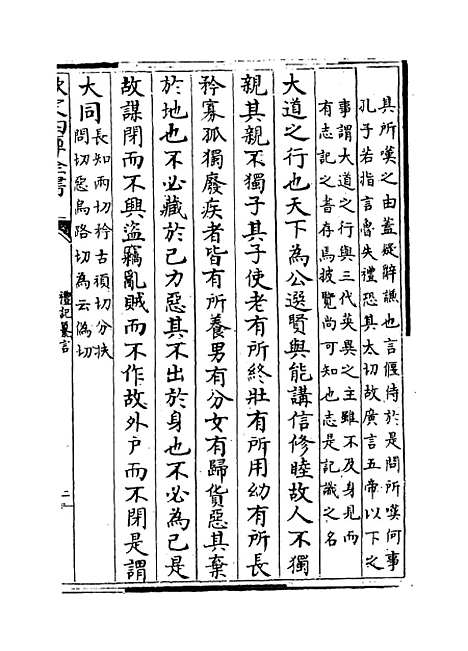 具所嘆之由蓋疑辭謙也言偃侍於是問所嘆何事
孔子若指言魯失禮恐其太切故廣言五帝以下之
事謂大道之行與三代英異之主雖不及身見而
有志記之書存焉披覽尚可知也志是記識之名
大道之行也天下為公選賢與能講信修睦故人不獨
親其親不獨子其子使老有所終壯有所用幼有所長
矜寡孤獨廢疾者皆有所養男有分女有歸貨惡其棄
於地也不必藏於己力惡其不出於身也不必為己是
故謀閉而不興盜竊亂賊而不作故外户而不閉是謂
大同
長知兩切矜古頑切分扶
問切惡烏路切為云偽切
四庫全書
禮記纂言